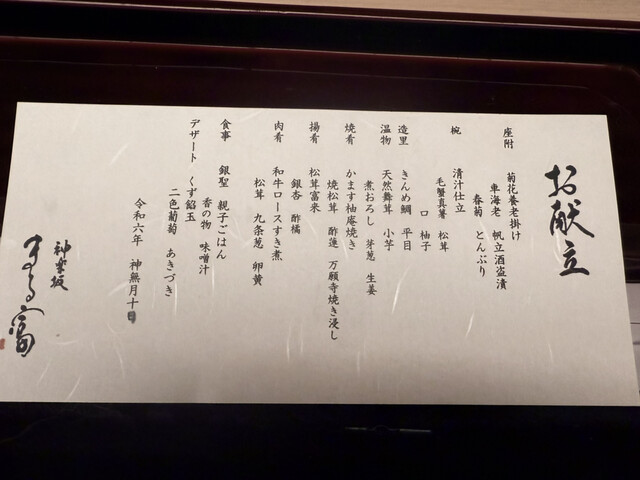 お献立
座附 菊花養老掛け
車海老 帆立酒盗漬
春菊 とんぶり
椀 清汁仕立
毛蟹真薯 松茸
口 柚子
造里 きんめ鯛 平目
温物 天然舞茸 小芋
煮おろし 芽葱 生姜
焼肴 かます柚庵焼き
焼松茸 酢蓮 万願寺焼き浸し
揚肴 松茸富来
銀杏 酢橘
肉肴 和牛ロースすき煮
松茸 九条葱 卵黄
食事 銀聖 親子ごはん
香の物 味噌汁
デザート くず餡玉
二色葡萄 あきづき
令和六年 神無月十日
神楽坂